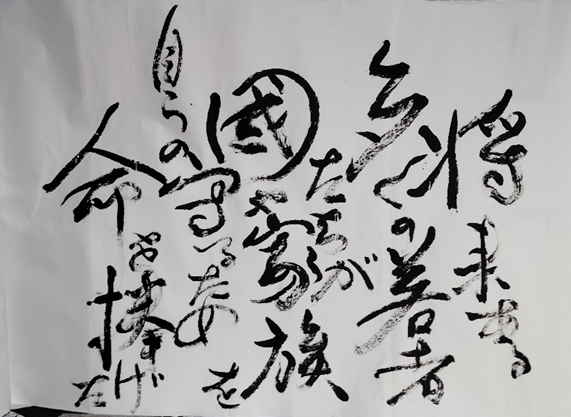 将来ある
多くの若者
たちが
國や家族を
自らの守る為
命を捧げた